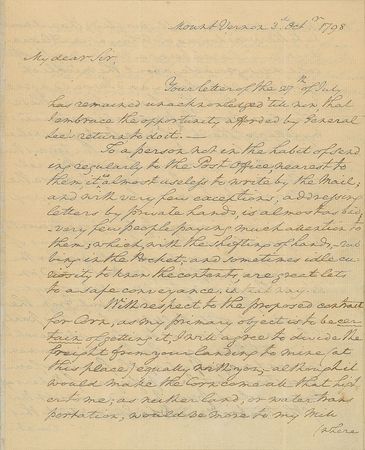 Mount Vernon 3d. Octr. 1798
My dear Sir,
Your letter of the 27th of July
has remained unacknowledged 'till now, that
I embrace the opportunity afforded by General
Lee's return to do it. —
To a person not in the habit of send
ing regularly to the Post Office, nearest to
them, it is almost useless to write by the Mail;
and with very few exceptions, addressing
letters by private hands, is almost as bad,
very few people paying much attention to
them; which, with the shifting of hands, rub
bing in the Pocket, and sometimes idle cu
riosity to know the contents, are great lets
to a safe conveyance.
With respect to the proposed contract
for Corn, as my primary object is to be cer
tain of getting it, I will agree to divide the
freight from your landing to mine (at
this place) equally with you; although it
would make the Corn come a
cr to me; as neither land, or water trans
portation, would be more to my Mill
(where